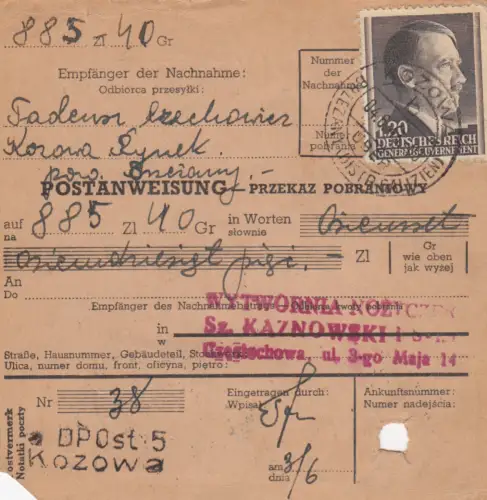 885 Zl 40 Gr
Empfänger der Nachnahme:
Odbiorca przesyłki:
Nummer
der
Nachnahme
Numer
pobrania
1,20
DEUTSCHES REICH
GENERALGOUVERNEMENT
KOZOWA
(DISTR. GALIZIEN)
Tadeusz Czechowicz
Kozowa Rynek
pow. Brzeżany.-
POSTANWEISUNG — PRZEKAZ POBRANIOWY
auf 885 Zl 40 Gr in Worten Osiemset
na słownie
osiemdziesiąt pięć.- Zl
Gr
wie oben
jak wyżej
An
Do
Empfänger des Nachnahmebetrags - Odbiorca kwoty pobrania
WYTWORNIA NOŻYCZEK
in Sz. KAZNOWSKI i S-
w Częstochowa, ul. 3-go Maja 14
Straße, Hausnummer, Gebäudeteil, Stockwerk:
Ulica, numer domu, front, oficyna, piętro:
Nr 38
Eingetragen durch:
Wpisał
Ankunftsnummer:
Numer nadejścia:
Postvermerk
Notatki poczty
DPOst: 5
Kozowa
am 3/6
dnia